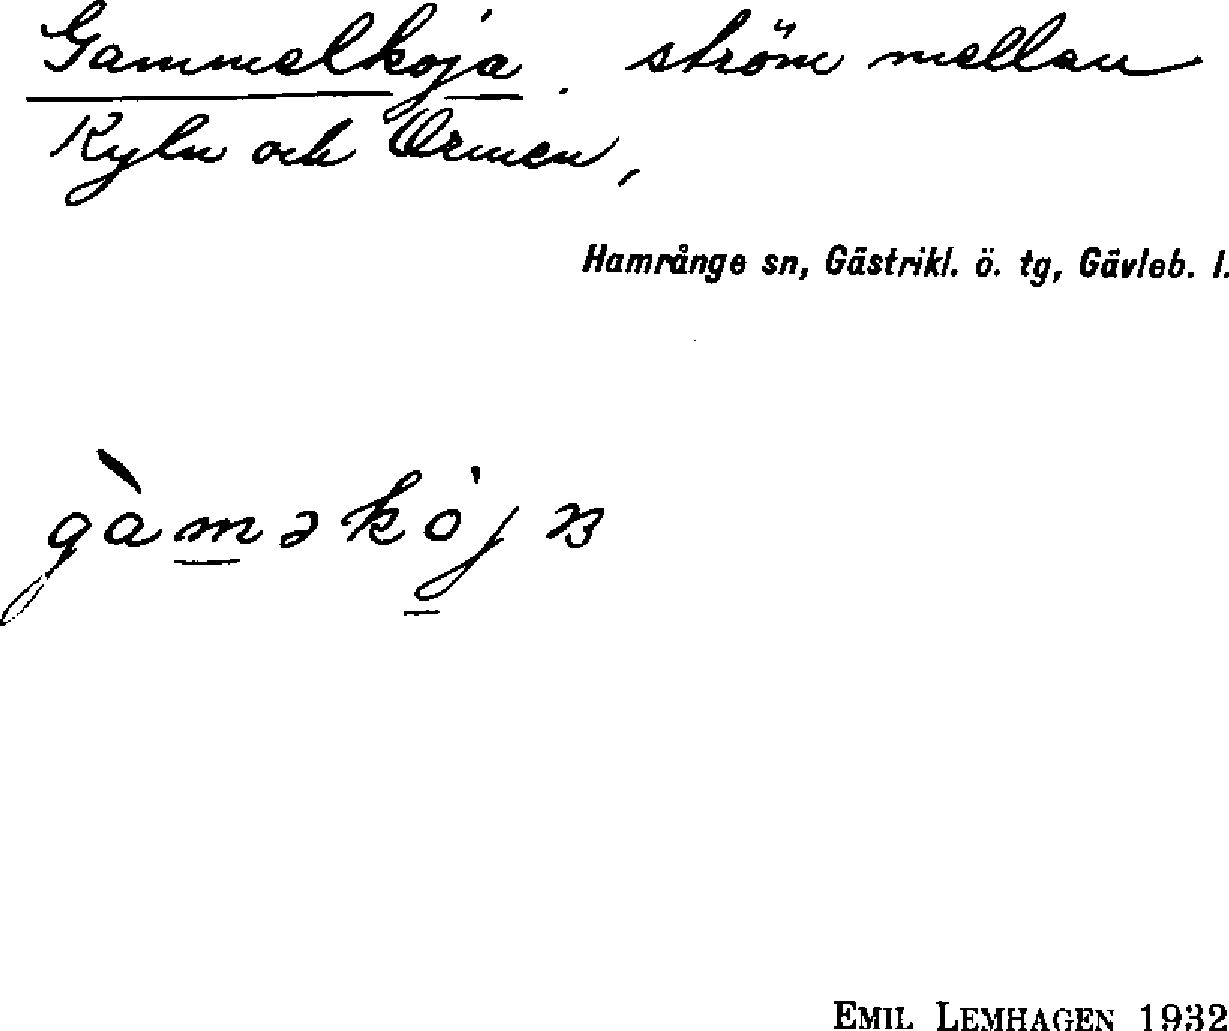 Gammelkoja. ström mellan
Kyln och Ormen,
Hamrånge sn, Gästrikl. ö. tg, Gävleb. l.
gàməkòjɐ
EMIL LEMHAGEN 1932